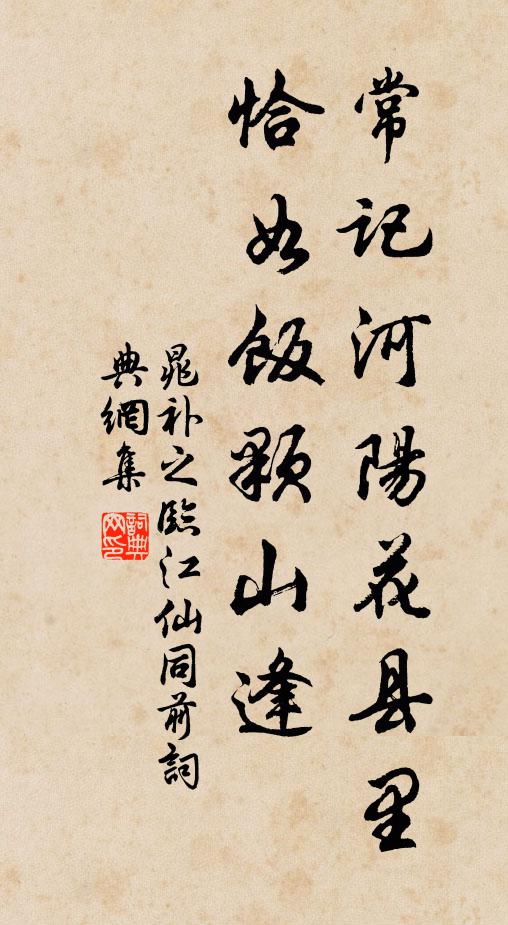 常记河陽花县里
恰如飯顆山逢
晁补之臨江仙同前詞
典網集
詞典网印